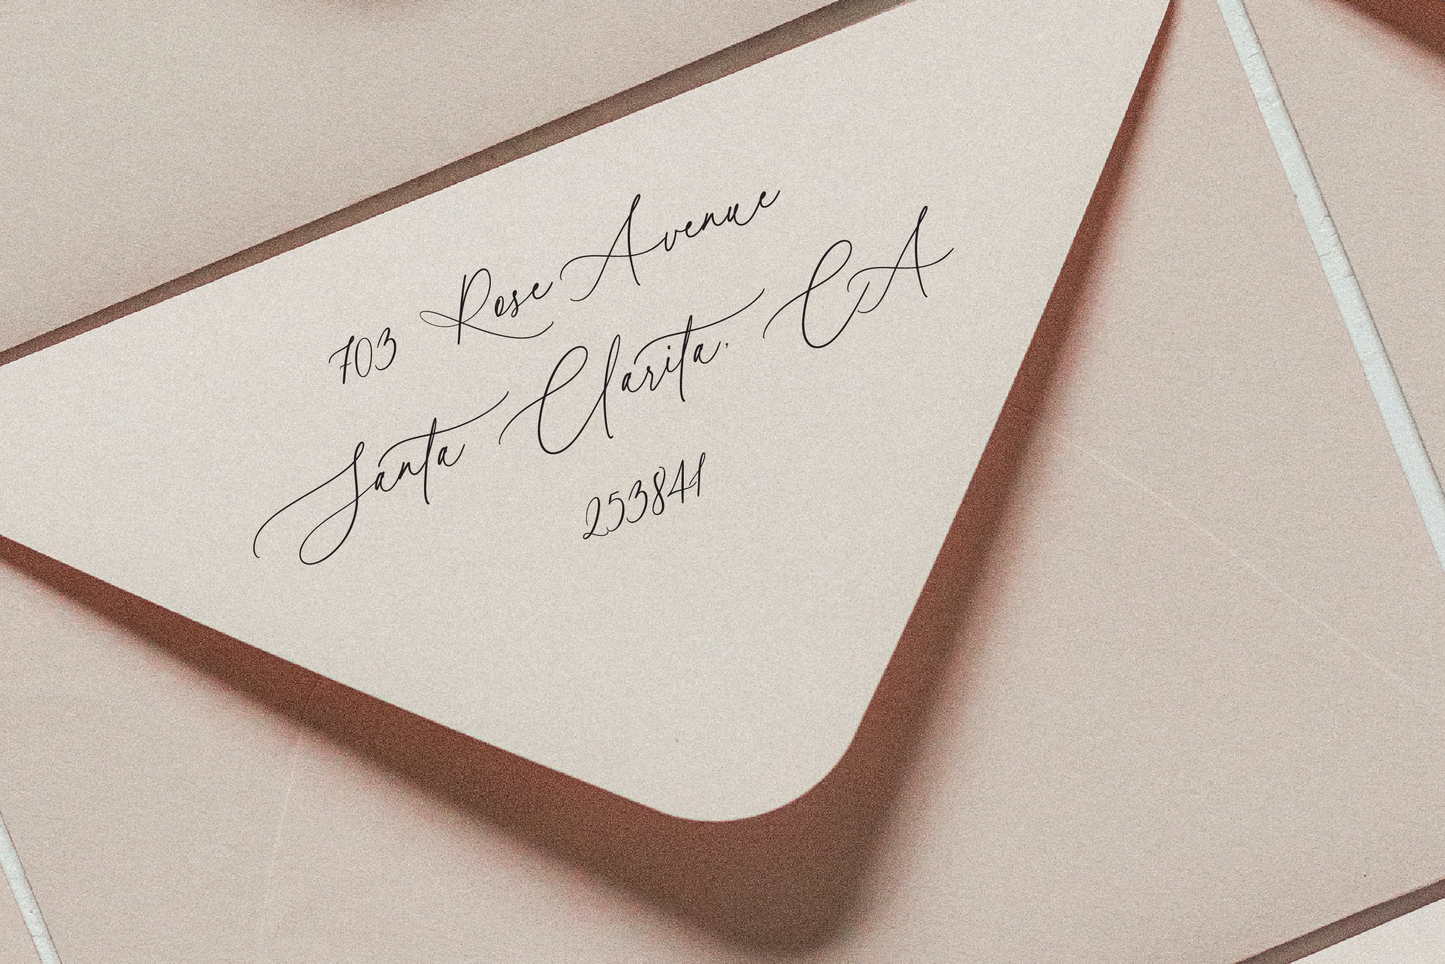 703 Rose Avenue
Santa Clarita, CA
253841